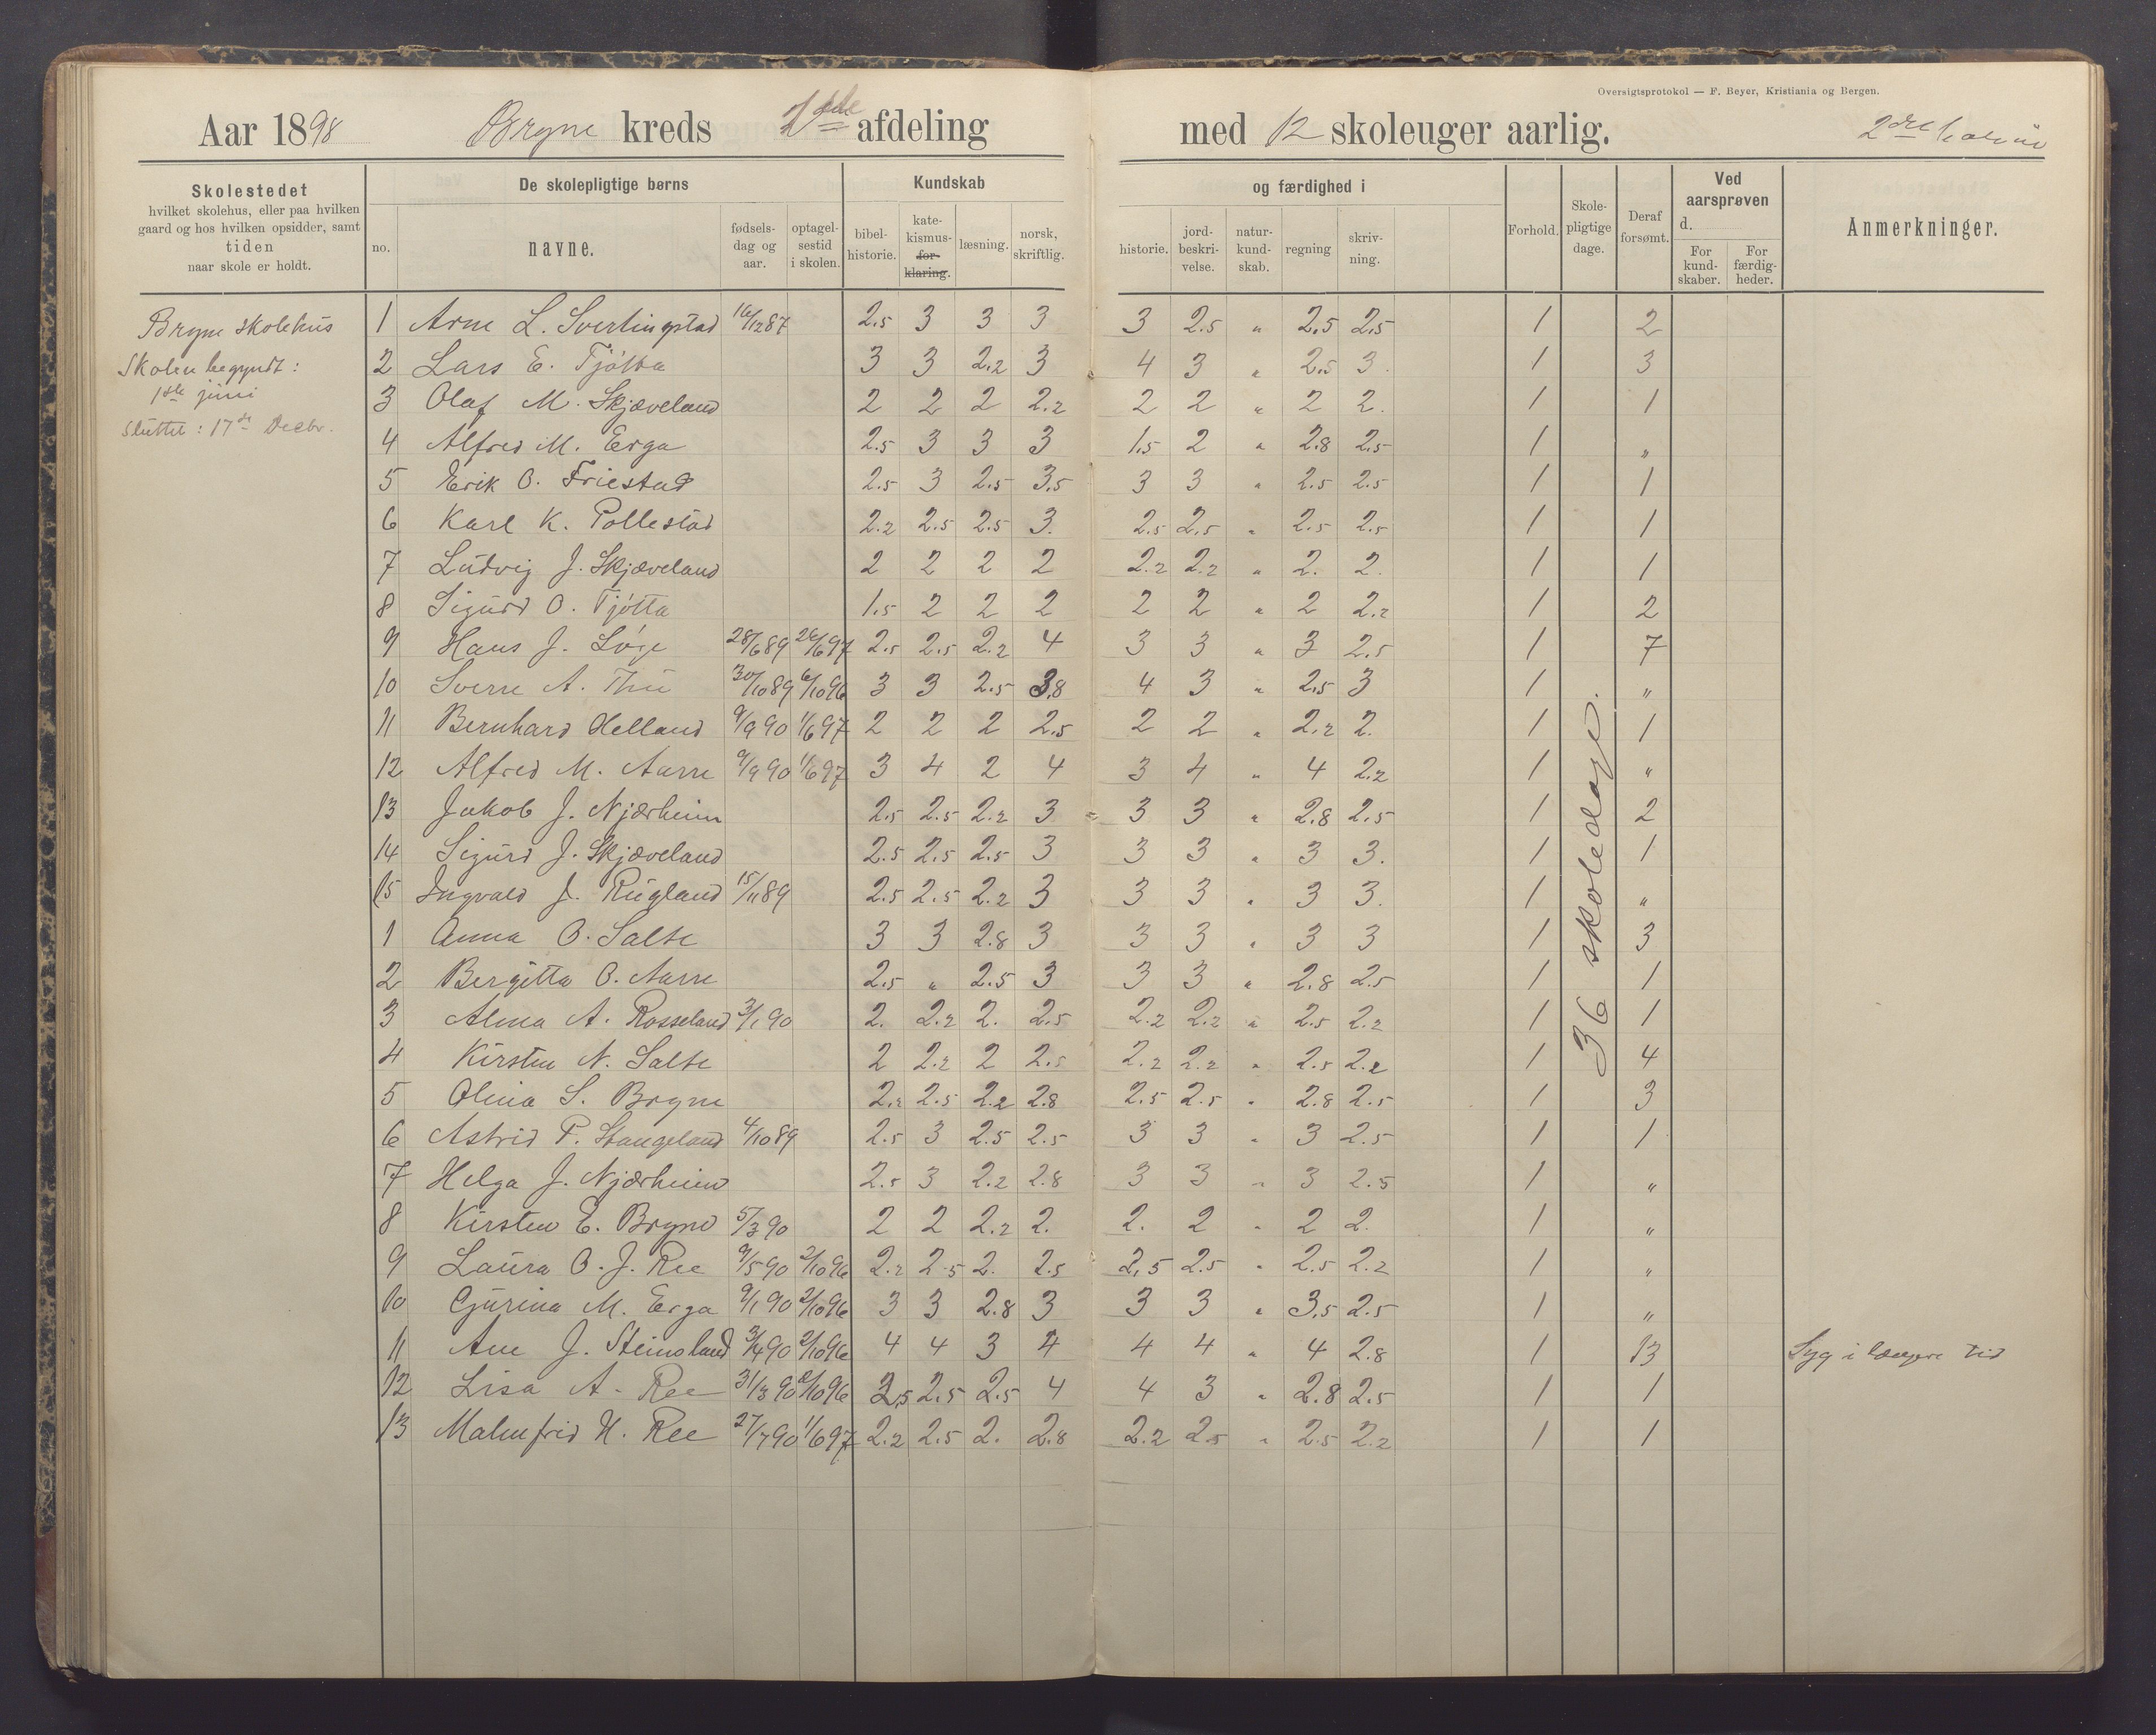 Oversigtsprotokol — F. Beyer, Kristiania og Bergen.
Aar 1898 Bryne kreds afdeling med 12 skoleuger aarlig. 2dre
Skolestedet
hvilket skolehus, eller paa hvilken
gaard og hos hvilken opsidder, samt
tiden
naar skole er holdt.
De skolepligtige børns
no. navne. fødsels-dag og aar. optagel-sestid i skolen.
Kundskab og færdighed i
bibel-historie. kate-kismus-for-klaring. læsning. norsk, skriftlig. historie. jord-beskri-velse. natur-kund-skab. regning skriv-ning.
Forhold. Skole-pligtige dage. Deraf forsømt.
Ved aarsprøven
d.
For kund-skaber. For færdig-heder.
Anmerkninger.
Bryne skolehus
Skolen begyndt:
1ste juni
sluttet: 17de Decbr.
36 skoledage.
1 Arne L. Sverlingstad 16/12 87 2.5 3 3 3 3 2.5 " 2.5 2.5 1 2
2 Lars E. Tjötta 3 3 2.2 3 4 3 " 2.5 3. 1 3
3 Olaf M. Skjæveland 2 2 2 2.2 2 2 " 2 2. 1 1
4 Alfred M. Erga 2.5 3 3 3 1.5 2 " 2.8 2.5 1 "
5 Erik O. Friestad 2.5 3 2.5 3.5 3 3 " 2.5 2.5 1 1
6 Karl K. Pollestad 2.2 2.5 2.5 3. 2.5 2.5 " 2.5 2.5 1 1
7 Ludvig J. Skjæveland 2 2 2 2 2.2 2.2 " 2. 2. 1 1
8 Sigurd O. Tjötta 1.5 2 2 2 2 2 " 2 2.2 1 2
9 Hans J. Löge 28/6 89 26/6 97 2.5 2.5 2.2 4 3 3 " 3 2.5 1 7
10 Sverre A. Thu 30/10 89 6/10 96 3 3 2.5 3.8 4 3 " 2.5 3 1 "
11 Bernhard Helland 9/9 90 1/6 97 2 2 2 2.5 2 2 " 2.2 2. 1 1
12 Alfred M. Aarre 9/9 90 1/6 97 3 4 2 4 3 4 " 4 2.2 1 "
13 Jakob J. Njærheim 2.5 2.5 2.2 3 3 3 " 2.8 2.5 1 2
14 Sigurd J. Skjæveland 2.5 2.5 2.5 3 3 3 " 3 3. 1 1
15 Ingvald J. Rugland 15/11 89 2.5 2.5 2.2 3 3 3 " 3 3. 1 "
1 Anna O. Salte 3 3 2.8 3 3 3 " 3 3 1 3
2 Bergitta O. Aarre 2.5 " 2.5 3 3 3 " 2.8 2.5 1 1
3 Alma A. Rosseland 3/1 90 2. 2.2 2. 2.5 2.2 2.2 " 2.5 2.2 1 1
4 Kirsten N. Salte 2 2.2 2 2.5 2.2 2.2 " 2.5 2.2 1 4
5 Olina S. Bryne 2.2 2.5 2.2 2.8 2.5 2.5 " 2.8 2.5 1 3
6 Astrid P. Stangeland 4/10 89 2.5 3 2.5 2.5 3 3 " 3 2.5 1 1
7 Helga J. Njærheim 2.5 3 2.2 2.8 3 3 " 3 2.5 1 "
8 Kirsten E. Bryne 5/3 90 2 2 2.2 2. 2. 2 " 2 2. 1 "
9 Laura O. J. Ree 9/5 90 2/10 96 2.2 2.5 2. 2.5 2,5 2.5 " 2.5 2.2 1 "
10 Gjurina M. Erga 9/1 90 2/10 96 3 3 2.8 3 3 3 " 3.5 2.5 1 "
11 Ane J. Steinsland 3/4 90 2/10 96 4 4 3 4 4 4 " 4 2.8 1 13 Syg i længre tid
12 Lisa A. Ree 31/3 90 2/10 96 2,5 2.5 2.5 4 4 3 " 2.8 2.5 1 1
13 Malmfrid H. Ree 27/7 90 1/6 97 2.2 2.5 2. 2.8 2.2 2.5 " 2.5 2.2 1 1